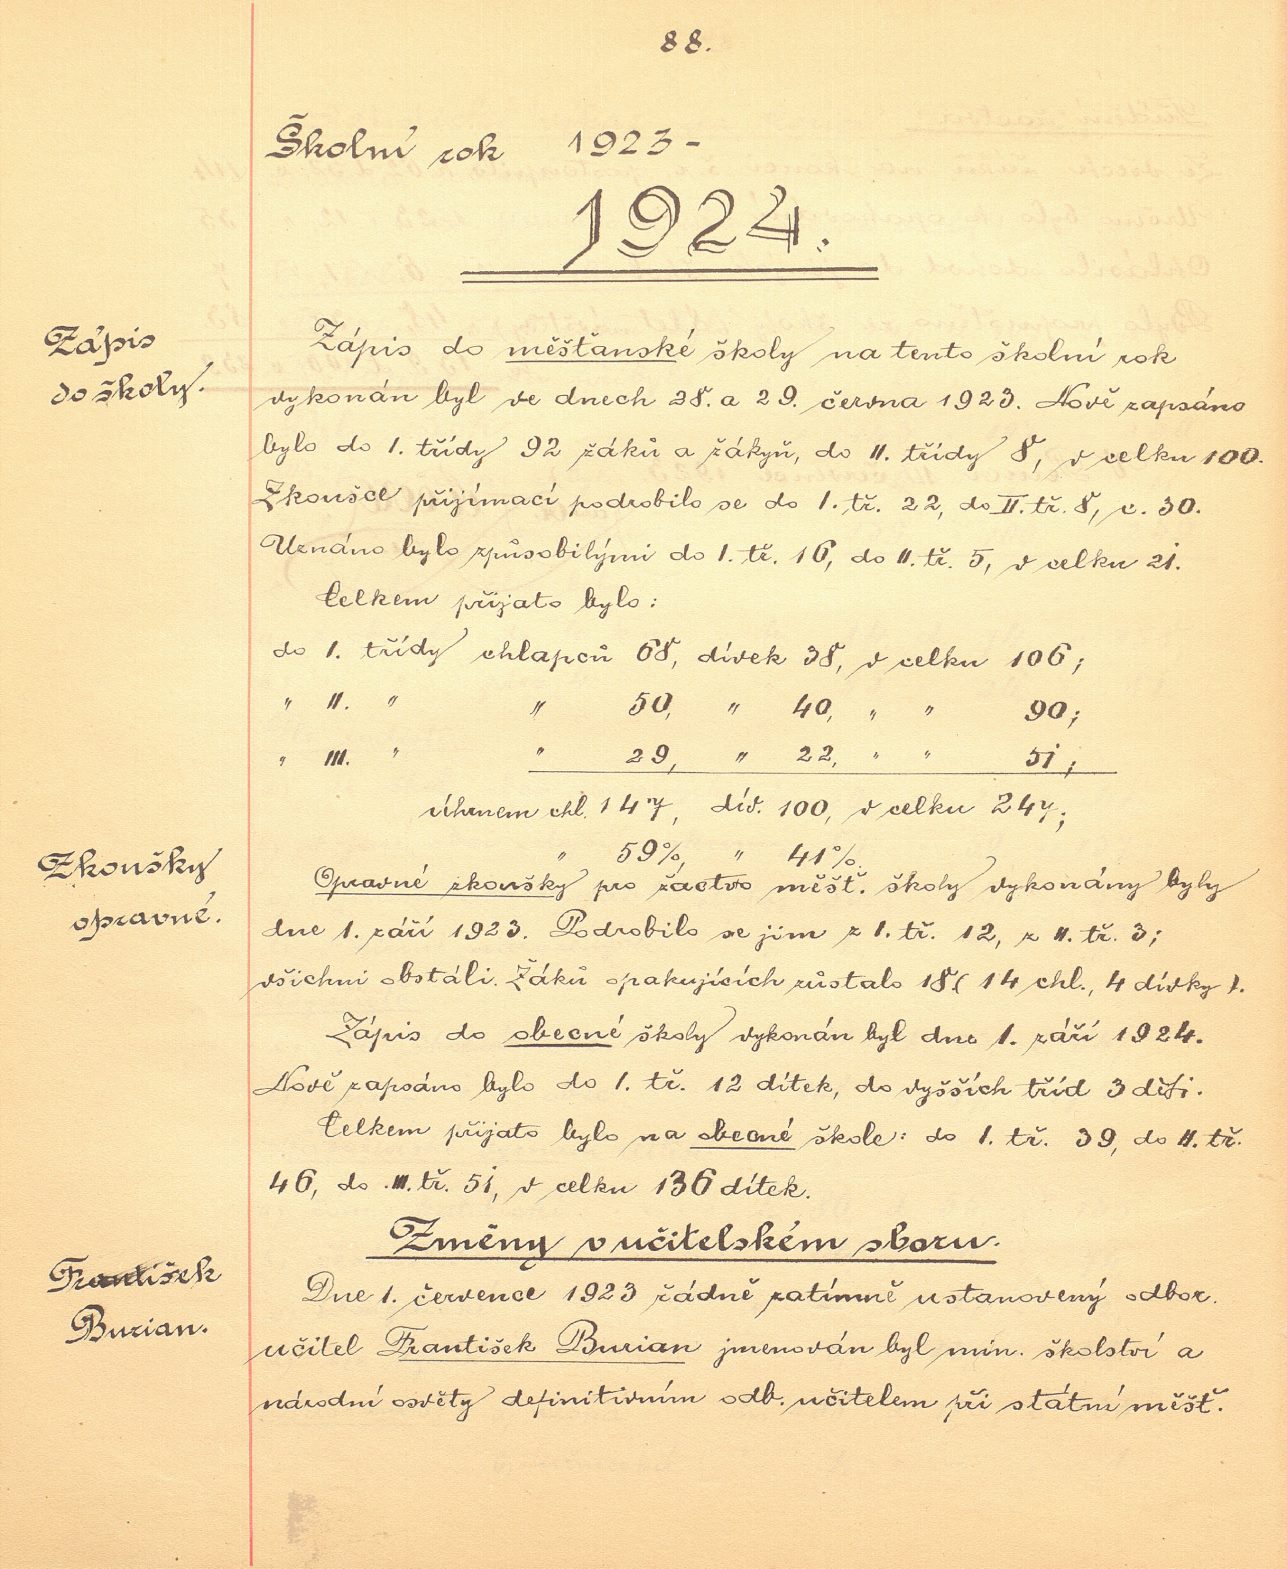 88.
Školní rok 1923-
1924.
Zápis
do školy.
Zápis do měšťanské školy na tento školní rok
vykonán byl ve dnech 28. a 29. června 1923. Nově zapsáno
bylo do I. třídy 92 žáků a žákyň, do II. třídy 8, v celku 100.
Zkoušce přijímací podrobilo se do I. tř. 22, do II. tř. 8, c. 30.
Uznáno bylo způsobilými do I. tř. 16, do II. tř. 5, v celku 21.
Celkem přijato bylo:
do I. třídy chlapců 68, dívek 38, v celku 106;
" II. " " 50, " 40, " " 90;
" III. " " 29, " 22, " " 51;
úhrnem chl. 147, dív. 100, v celku 247;
" 59%, " 41%.
Zkoušky
opravné.
Opravné zkoušky pro žactvo měšť. školy vykonány byly
dne 1. září 1923. Podrobilo se jim z I. tř. 12, z II. tř. 3;
všichni obstáli. Žáků opakujících zůstalo 18 (14 chl., 4 dívky).
Zápis do obecné školy vykonán byl dne 1. září 1924.
Nově zapsáno bylo do I. tř. 12 dítek, do vyšších tříd 3 děti.
Celkem přijato bylo na obecné škole: do I. tř. 39, do II. tř.
46, do III. tř. 51, v celku 136 dítek.
Změny v učitelském sboru.
František
Burian.
Dne 1. července 1923 řádně zatímně ustanovený odbor.
učitel František Burian jmenován byl min. školství a
národní osvěty definitivním odb. učitelem při státní měšť.